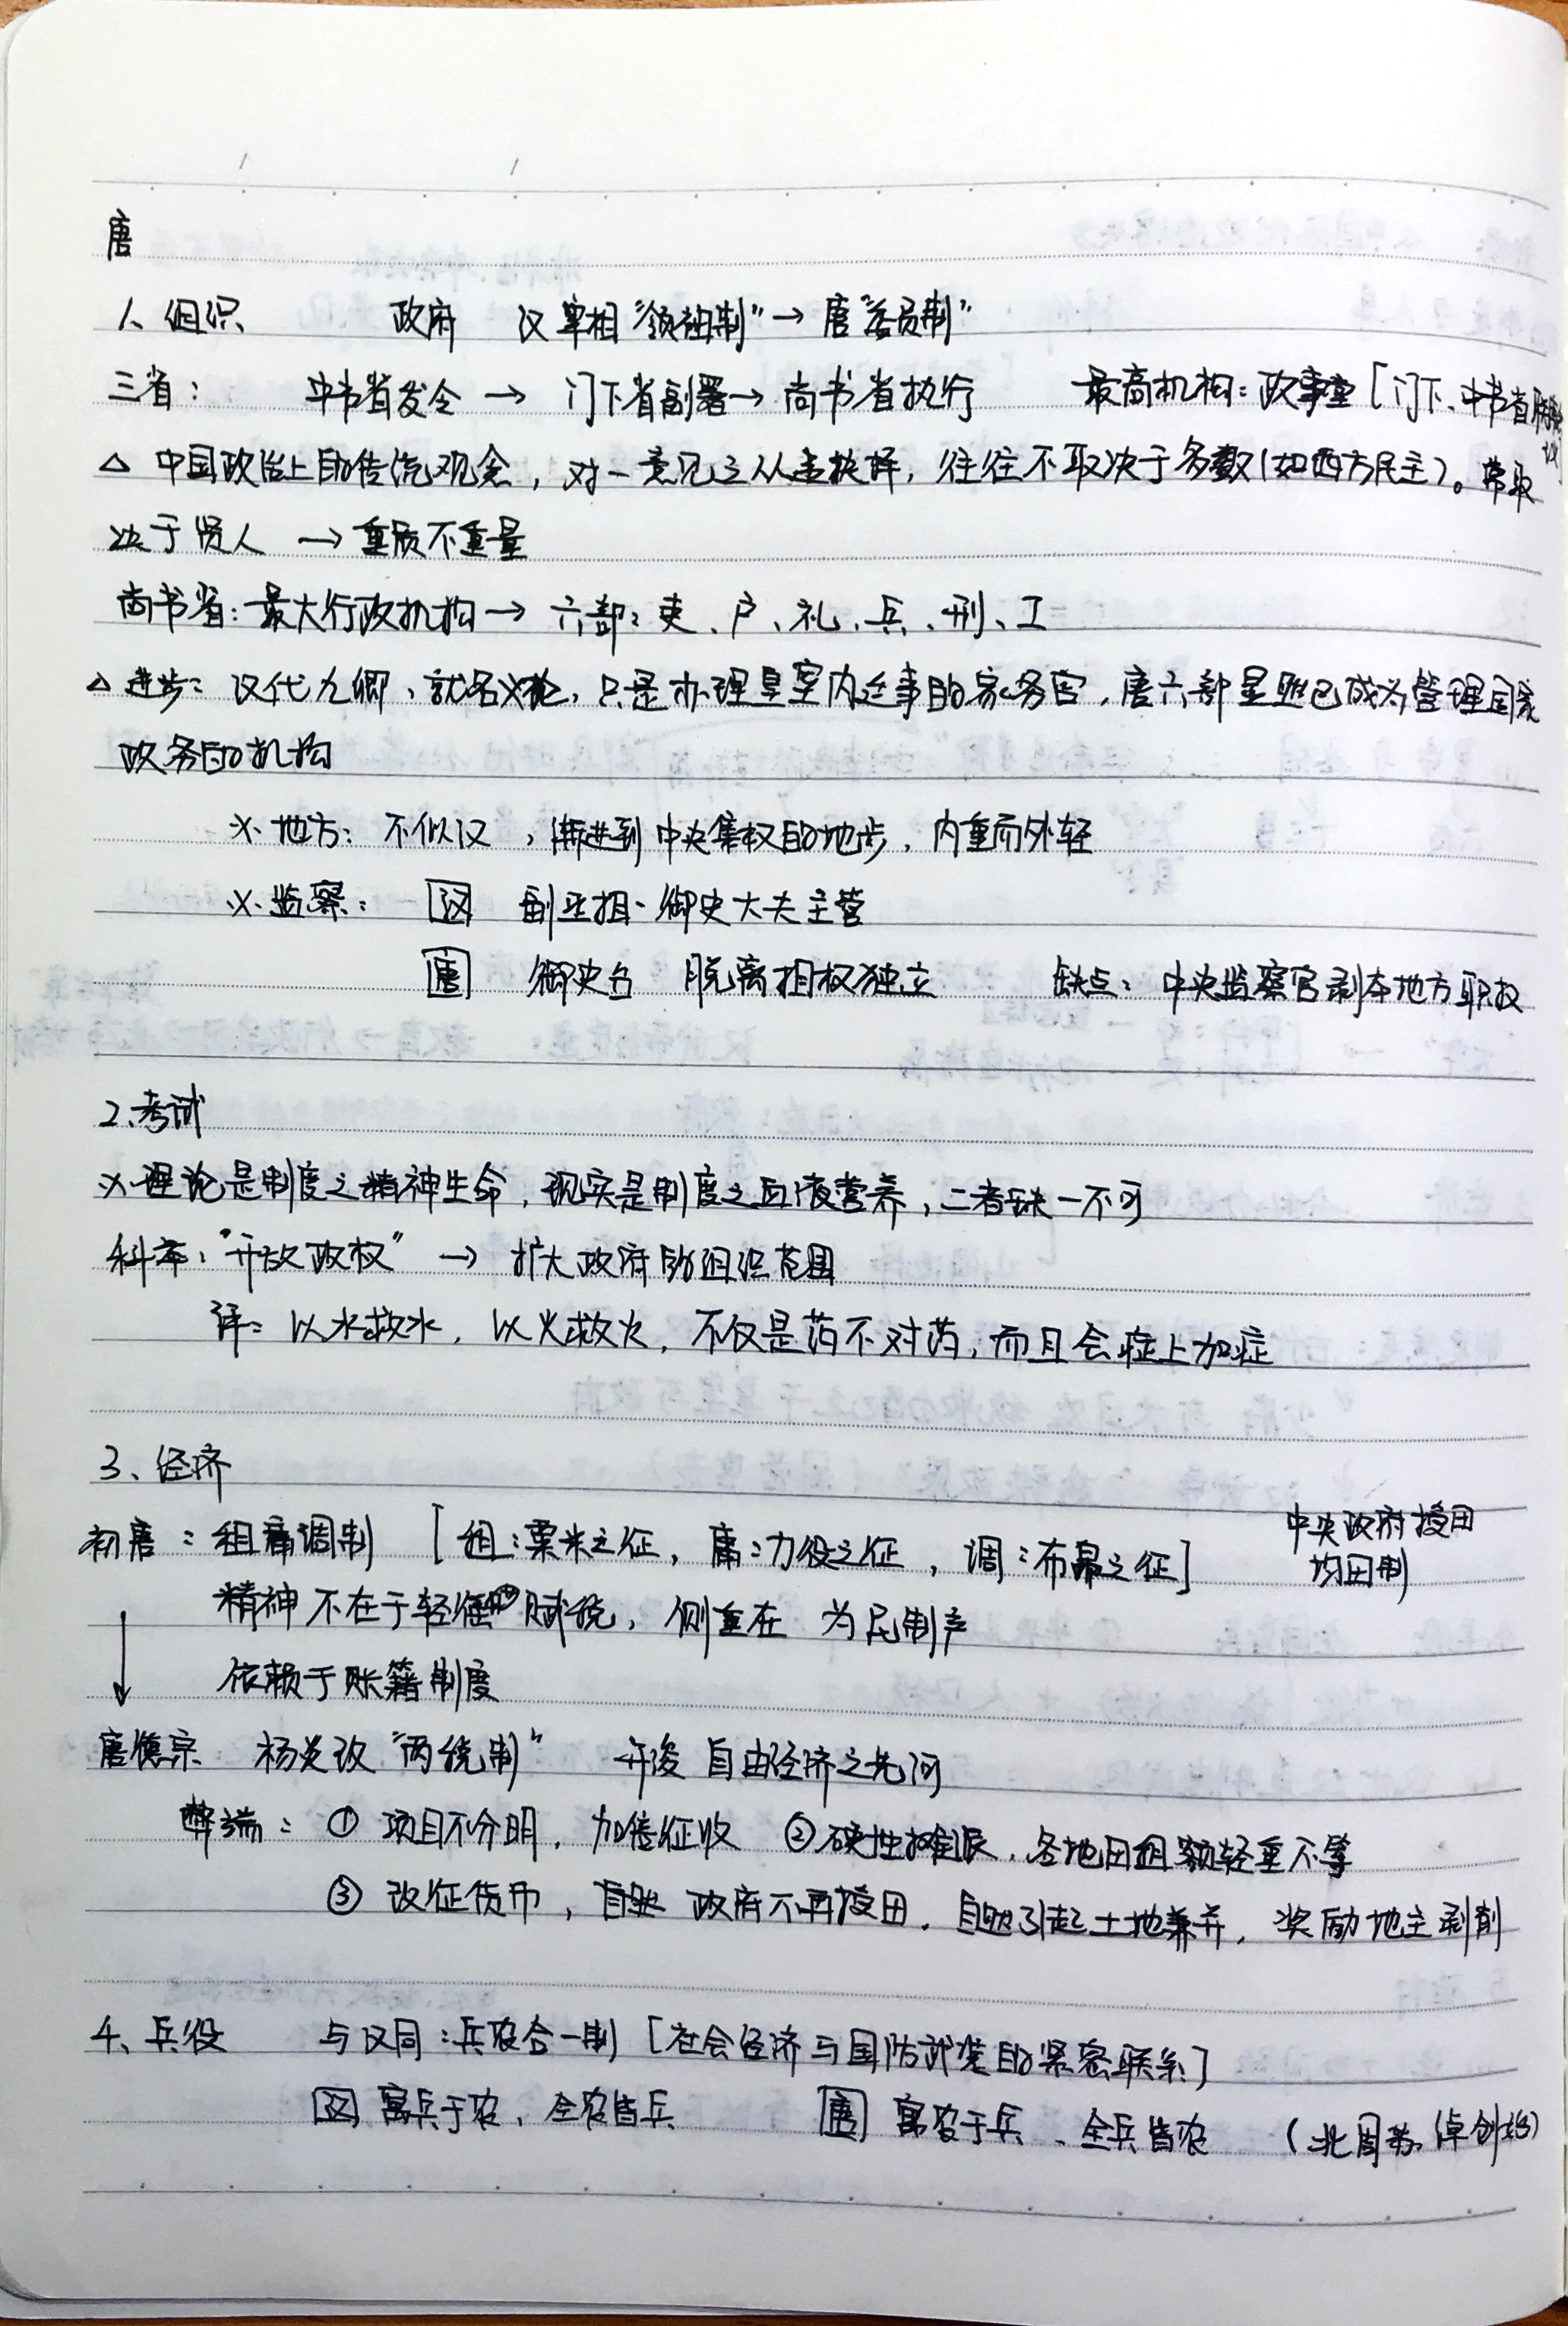 唐
1、组织 政府 汉宰相“领袖制”→唐“委员制”
三省: 中书省发令 → 门下省副署→ 尚书省执行 最高机构:政事堂[门下、中书省联席会议]
△ 中国政治上的传统观念,对一意见之从违抉择,往往不取决于多数(如西方民主)。常取
决于贤人 →重质不重量
尚书省:最大行政机构→ 六部:吏、户、礼、兵、刑、工
△ 进步:汉代九卿,就名义论,只是办理皇室内廷事的家务官,唐六部显然已成为管理国家
政务的机构
※ 地方: 不似汉 ,渐进到中央集权的地步,内重而外轻
※ 监察: 汉 副丞相、御史大夫主管
唐 御史台 脱离相权独立 缺点:中央监察官剥夺地方职权
2、考试
※理论是制度之精神生命,现实是制度之血液营养,二者缺一不可
科举:“开放政权” → 扩大政府的组织范围
评:以水救水,以火救火,不仅是药不对药,而且会症上加症
3、经济
初唐:租庸调制 [租:粟米之征,庸:力役之征,调:布帛之征] 中央政府授田
均田制
精神不在于轻徭 赋税,侧重在 为民制产
依赖于账籍制度
唐德宗 杨炎改“两税制” 开后 自由经济之先河
弊端:① 项目不分明,加倍征收 ②硬性摊派,各地田租额轻重不等
③ 改征货币, 政府不再授田,自然引起土地兼并,奖励地主剥削
4、兵役 与汉同:兵农合一制[社会经济与国防武装的紧密联系]
汉 寓兵于农,全农皆兵 唐 寓农于兵、全兵皆农 (北周苏绰创始)